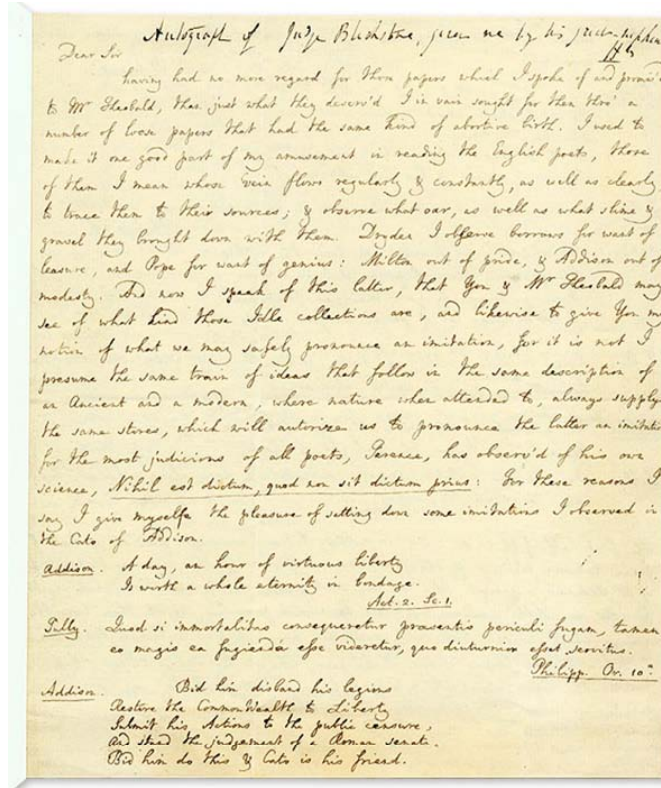 Autograph of Judge Blackstone, given me by his
Dear Sir
having had no more regard for those papers which I spoke of and promis'd
to Mr Theobald, than just what they deserv'd I in vain sought for them thro' a
number of loose papers that had the same kind of abortive birth. I used to
make it one good part of my amusement in reading the English poets, those
of them I mean whose vein flows regularly & constantly, as well as clearly
to trace them to their sources; & observe what oar, as well as what slime &
gravel they brought down with them. Dryden I observe borrows for want of
leasure, and Pope for want of genius: Milton out of pride, & Addison out of
modesty. And now I speak of this latter, that You & Mr Theobald may
see of what kind those Idle collections are, and likewise to give You my
notion of what we may safely pronounce an imitation, for it is not I
presume the same train of ideas that follow in the same description of
an Ancient and a modern, where nature when attended to, always supplys
the same stores, which will autorize us to pronounce the latter an imitatio
for the most judicious of all poets, Terence, has observ'd of his own
science, Nihil est dictum, quod non sit dictum prius: For these reasons I
say I give myselfe the pleasure of setting down some imitations I observed in
the Cato of Addison.
Addison. A day, an hour of virtuous liberty
Is worth a whole eternity in bondage.
Act. 2. Sc. 1.
Tully. Quod si immortalitas consequeretur præsentis periculi fugam, tamen
eo magis ea fugienda esse videretur, quo diuturnior esset servitus.
Philipp. Or. 10a.
Addison. Bid him disband his legions
Restore the CommonWealth to Liberty
Submit his Actions to the public censure,
And stand the judgement of a Roman senate.
Bid him do this & Cato is his friend.